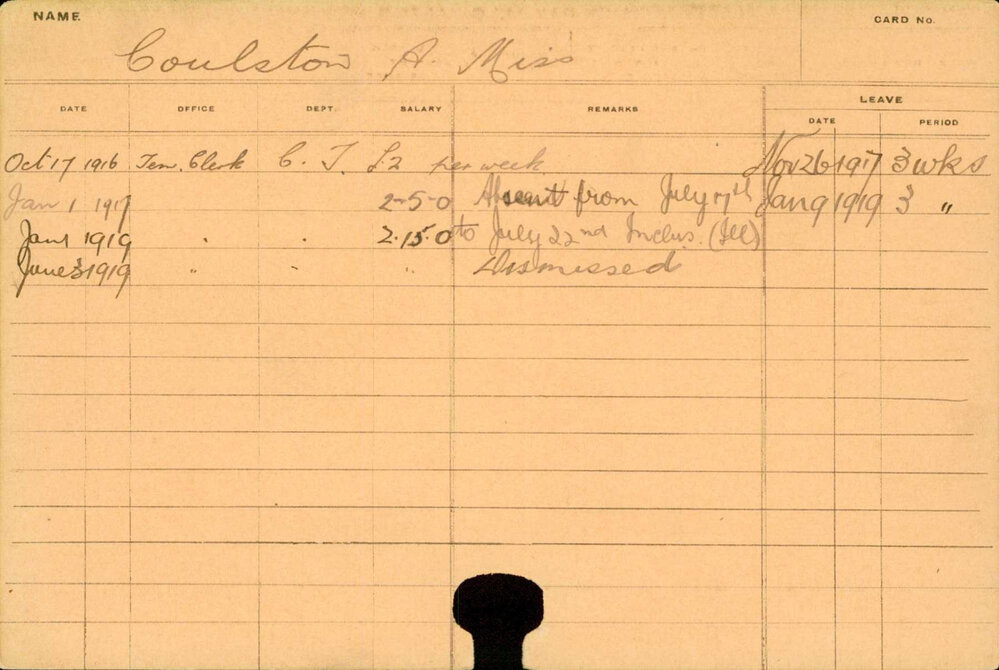 NAME.
CARD No.
Coulston A. Miss
LEAVE
DATE OFFICE DEPT. SALARY REMARKS DATE PERIOD
Oct 17 1916 Tem. Clerk C. T. £2 per week Nov 26 1917 3 wks
Jan 1 1917 2-5-0 Absent from July 17th Jan 9 1919 3 "
Jan 1 1919 " 2.15.0 to July 22nd Inclus. (Ill)
June 3 1919 " " " Dismissed